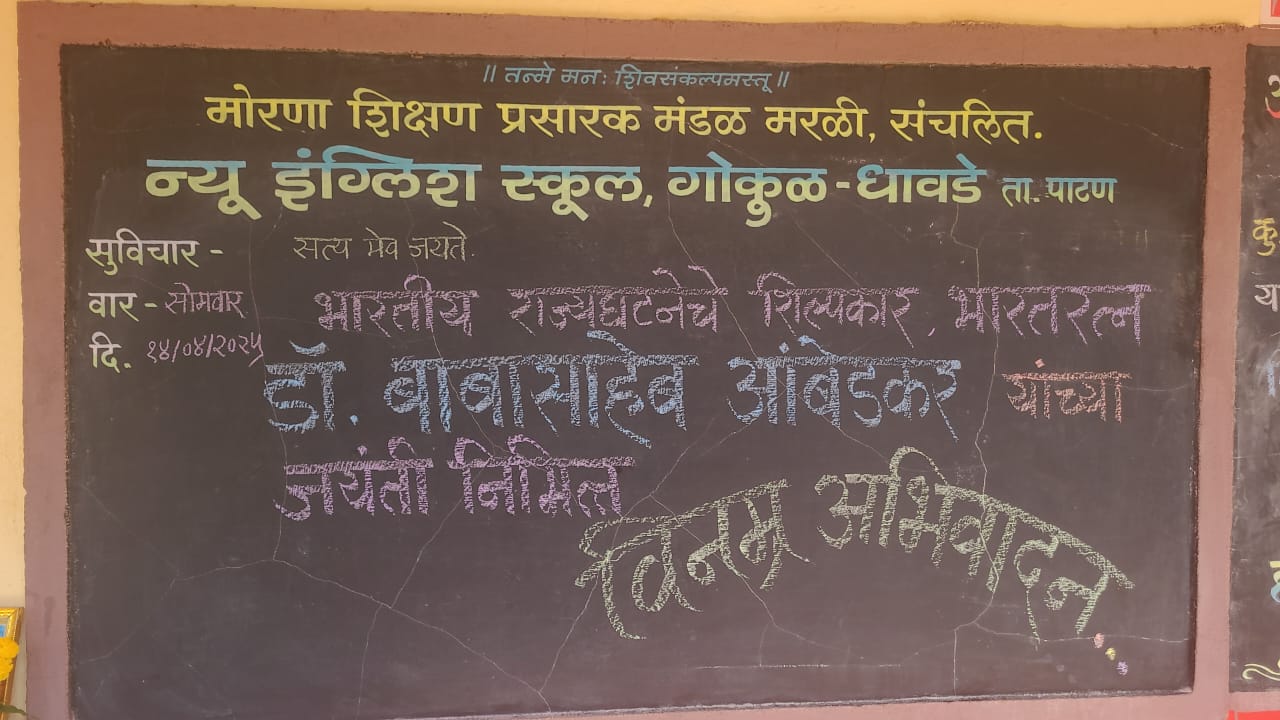 ॥ तन्मे मन: शिवसंकल्पमस्तू ॥
मोरणा शिक्षण प्रसारक मंडळ मरळी, संचलित.
न्यू इंग्लिश स्कूल, गोकुळ-धावडे ता. पाटण
सुविचार - सत्य मेव जयते.
वार - सोमवार
दि. १४/०४/२०२५
भारतीय राज्यघटनेचे शिल्पकार, भारतरत्न
डॉ. बाबासाहेब आंबेडकर यांच्या
जयंती निमित्त
विनम्र अभिवादन